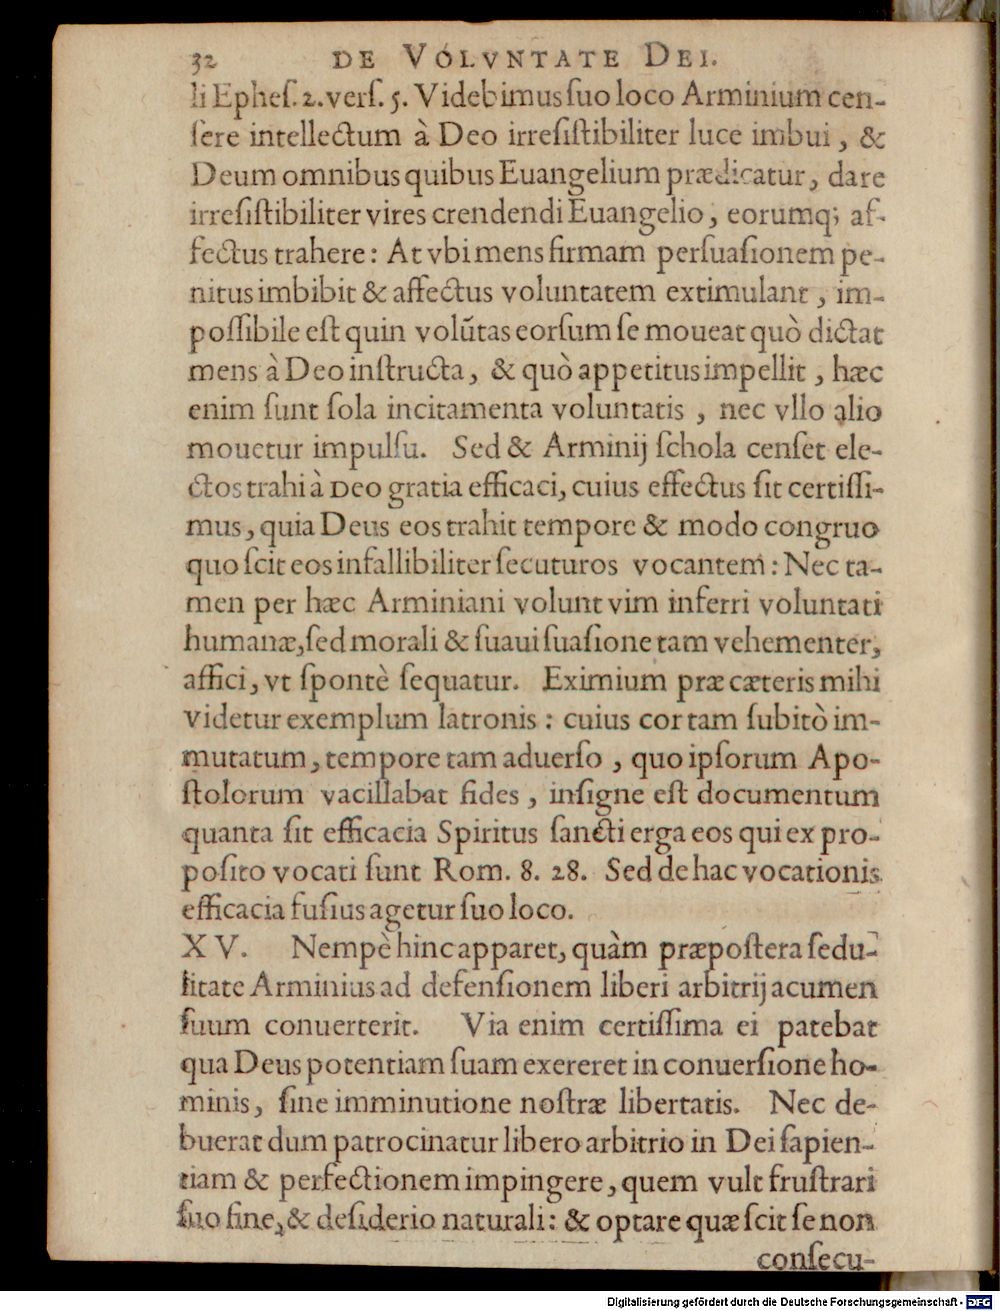 32 DE VOLVNTATE DEI.
li Epheſ. 2. verſ. 5. Videbimus ſuo loco Arminium cen-
ſere intellectum à Deo irreſiſtibiliter luce imbui, &
Deum omnibus quibus Euangelium prædicatur, dare
irreſiſtibiliter vires crendendi Euangelio, eorumq; af-
fectus trahere: At vbi mens firmam perſuaſionem pe-
nitus imbibit & affectus voluntatem extimulant, im-
poſſibile eſt quin volũtas eorſum ſe moueat quò dictat
mens à Deo inſtructa, & quò appetitus impellit, hæc
enim ſunt ſola incitamenta voluntatis, nec vllo alio
mouetur impulſu. Sed & Arminij ſchola cenſet ele-
ctos trahi à Deo gratia efficaci, cuius effectus ſit certiſſi-
mus, quia Deus eos trahit tempore & modo congruo
quo ſcit eos infallibiliter ſecuturos vocantem: Nec ta-
men per hæc Arminiani volunt vim inferri voluntati
humanæ, ſed morali & ſuaui ſuaſione tam vehementer,
affici, vt ſpontè ſequatur. Eximium præ cæteris mihi
videtur exemplum latronis: cuius cor tam ſubitò im-
mutatum, tempore tam aduerſo, quo ipſorum Apo-
ſtolorum vacillabat fides, inſigne eſt documentum
quanta ſit efficacia Spiritus ſancti erga eos qui ex pro-
poſito vocati ſunt Rom. 8. 28. Sed de hac vocationis
efficacia fuſius agetur ſuo loco.
XV. Nempè hinc apparet, quàm præpoſtera ſedu-
litate Arminius ad defenſionem liberi arbitrij acumen
ſuum conuerterit. Via enim certiſſima ei patebat
qua Deus potentiam ſuam exereret in conuerſione ho-
minis, ſine imminutione noſtræ libertatis. Nec de-
buerat dum patrocinatur libero arbitrio in Dei ſapien-
tiam & perfectionem impingere, quem vult fruſtrari
ſuo fine, & deſiderio naturali: & optare quæ ſcit ſe non
conſecu-
Digitalisierung gefördert durch die Deutsche Forschungsgemeinschaft - DFG